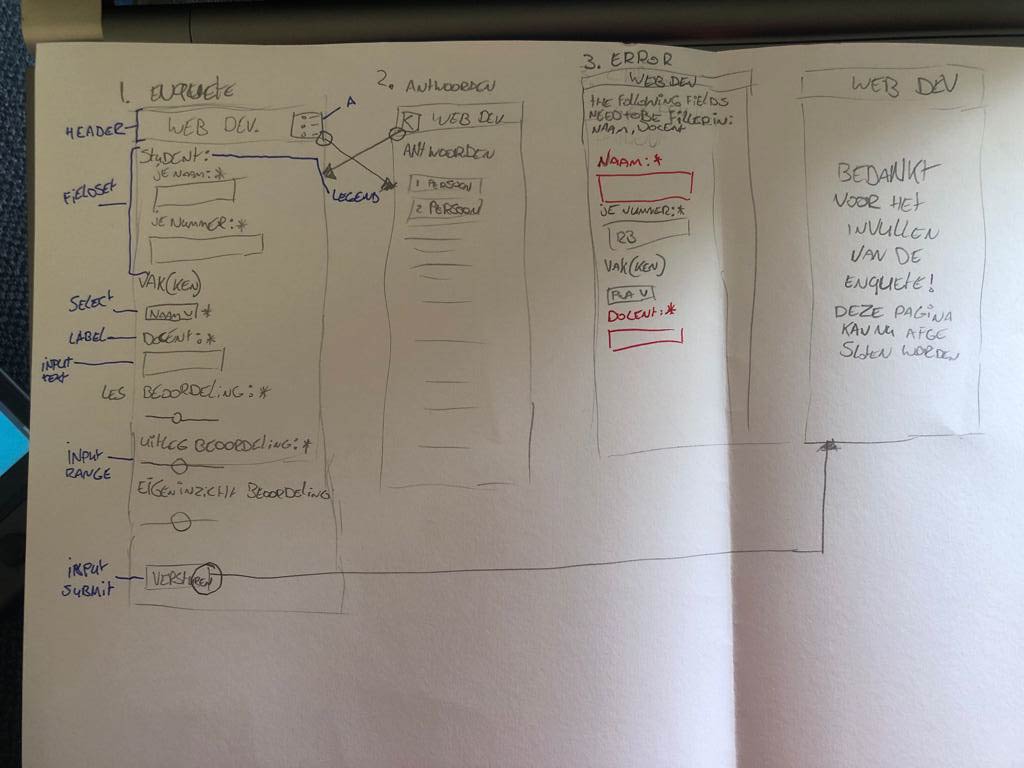 1. ENQUETE
HEADER
WEB DEV.
A
FIELDSET
STUDENT:
LEGEND
JE NAAM:*
JE NUMMER:*
VAK(KEN)
SELECT
NAAM V *
LABEL
DOCENT:*
INPUT
TEXT
LES BEOORDELING:*
UITLEG BEOORDELING:*
INPUT
RANGE
EIGEN INZICHT BEOORDELING
INPUT
SUBMIT
VERSTUREN
2. ANTWOORDEN
WEB DEV
ANTWOORDEN
1 PERSOON
2 PERSOON
3. ERROR
WEB DEV
THE FOLLOWING FIELDS
NEED TO BE FILLER IN:
NAAM, DOCENT
NAAM:*
JE NUMMER:*
RB
VAK(KEN)
DOCENT:*
WEB DEV
BEDANKT
VOOR HET
INVULLEN
VAN DE
ENQUETE!
DEZE PAGINA
KAN NU AFGE
SLOTEN WORDEN